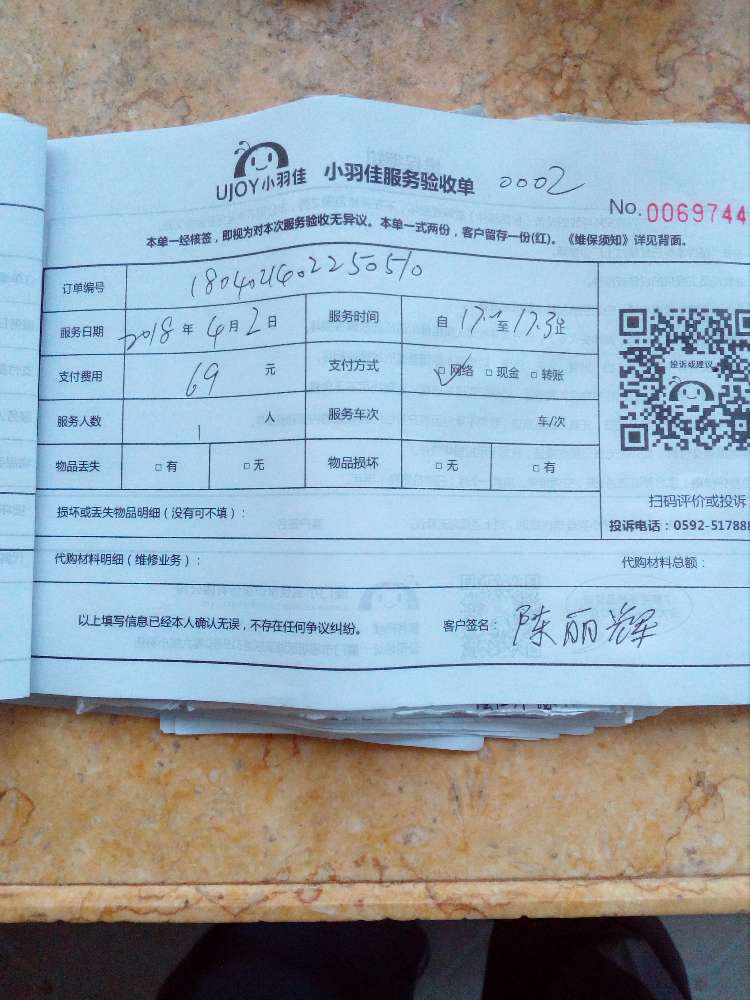 UJOY小羽佳 小羽佳服务验收单 0002
No. 0069744
本单一经核签，即视为对本次服务验收无异议。本单一式两份，客户留存一份(红)。《维保须知》详见背面。
订单编号 180402140225050
服务日期 2018 年 4 月 2 日 服务时间 自 17. 至 17.3
支付费用 69 元 支付方式 □ 网络 □ 现金 □ 转账
服务人数 1 人 服务车次 车/次
物品丢失 □ 有 □ 无 物品损坏 □ 无 □ 有
投诉或建议
扫码评价或投诉
投诉电话：0592-51788
损坏或丢失物品明细（没有可不填）：
代购材料明细（维修业务）： 代购材料总额：
以上填写信息已经本人确认无误，不存在任何争议纠纷。 客户签名： 陈丽辉